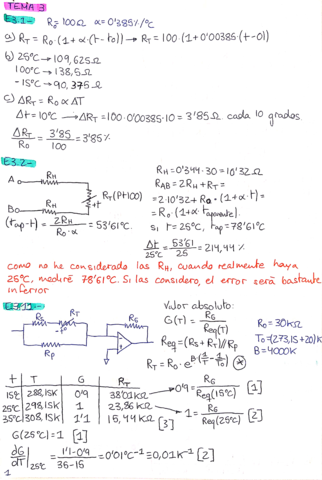 TEMA 3
E3.1- R₀=100Ω α=0'385%/°C
a) R_T = R₀·(1+α·(t-t₀)) → R_T = 100·(1+0'00385·(t-0))
b) 25°C → 109,625Ω
100°C → 138,5Ω
-15°C → 90,375Ω
c) ΔR_T = R₀αΔT
Δt = 10°C → ΔR_T = 100·0'00385·10 = 3'85Ω cada 10 grados.
ΔR_T/R₀ = 3'85/100 = 3'85%
E3.2-
A R_H
+t R_T (Pt100)
B R_H
R_H = 0'344·30 = 10'32Ω
R_AB = 2R_H + R_T =
= 2·10'32 + R₀·(1+α·t) =
= R₀·(1+α·t_aparente).
(t_ap - t) = 2R_H/R₀·α = 53'61°C
si t = 25°C, t_ap = 78'61°C
Δt/25 = 53'61/25 = 214,44%
como no he considerado las R_H, cuando realmente haya
25°C, mediré 78'61°C. Si las considero, el error será bastante
inferior
R_S R_T R_G
R_P
Valor absoluto:
G(T) = R_G/Req(T)
Req = (R_S+R_T)//R_P
R_T = R₀·e^B(1/T - 1/T₀)
R₀ = 30KΩ
T₀ = (273,15+20)K
B = 4000K
t T G R_T
15°C 288,15K 0'9 38'01KΩ → 0'9 = R_G/Req(15°C) [1]
25°C 298,15K 1 23,86KΩ → 1 = R_G/Req(25°C) [2]
35°C 308,15K 1'1 15,44KΩ [3]
G(25°C) = 1 [1]
dG/dT |25°C = 1'1-0'9/35-15 = 0'01°C⁻¹ = 0,01K⁻¹ [2]
1